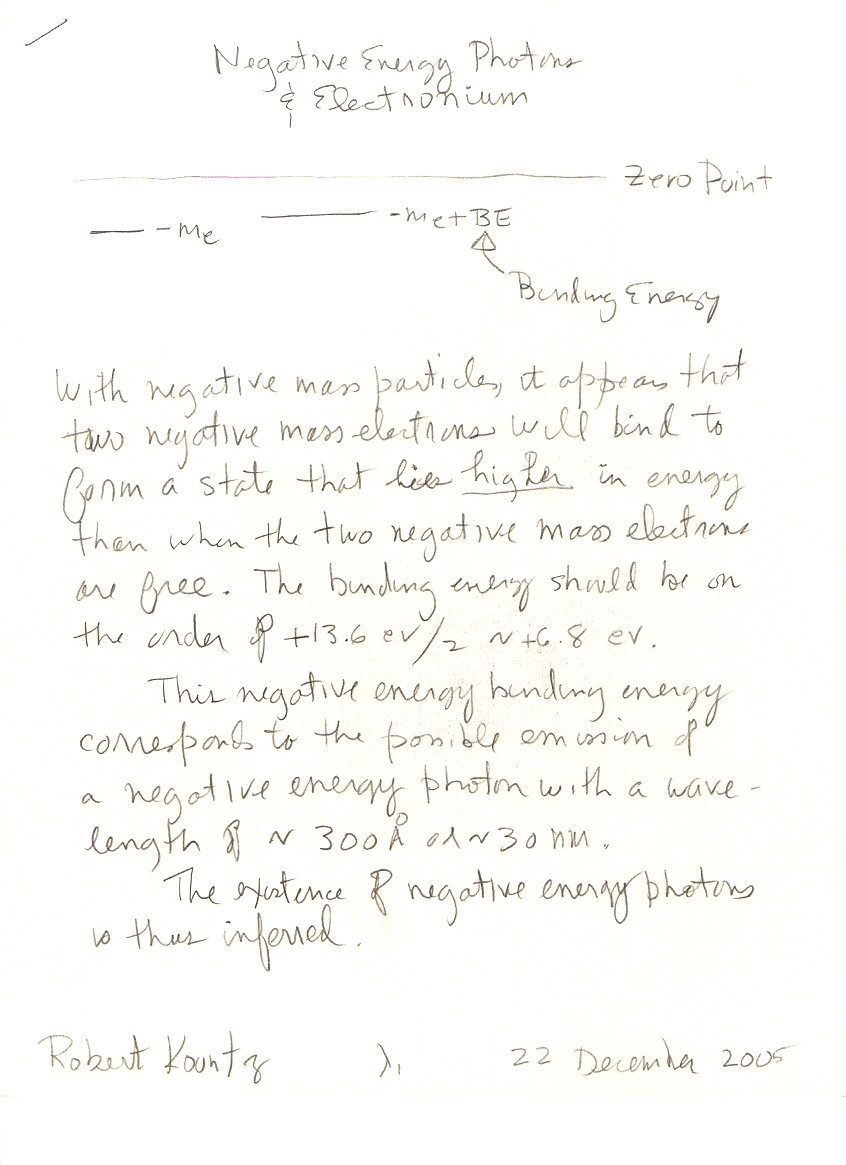 Negative Energy Photons
& Electronium
Zero Point
-me
-me+BE
Binding Energy
With negative mass particles, it appears that
two negative mass electrons will bind to
form a state that lies higher in energy
than when the two negative mass electrons
are free. The binding energy should be on
the order of +13.6 ev/2 ~ +6.8 ev.
This negative energy binding energy
corresponds to the possible emission of
a negative energy photon with a wave-
length of ~ 300Å or ~30 nm.
The existence of negative energy photons
is thus inferred.
Robert Kountz
22 December 2005